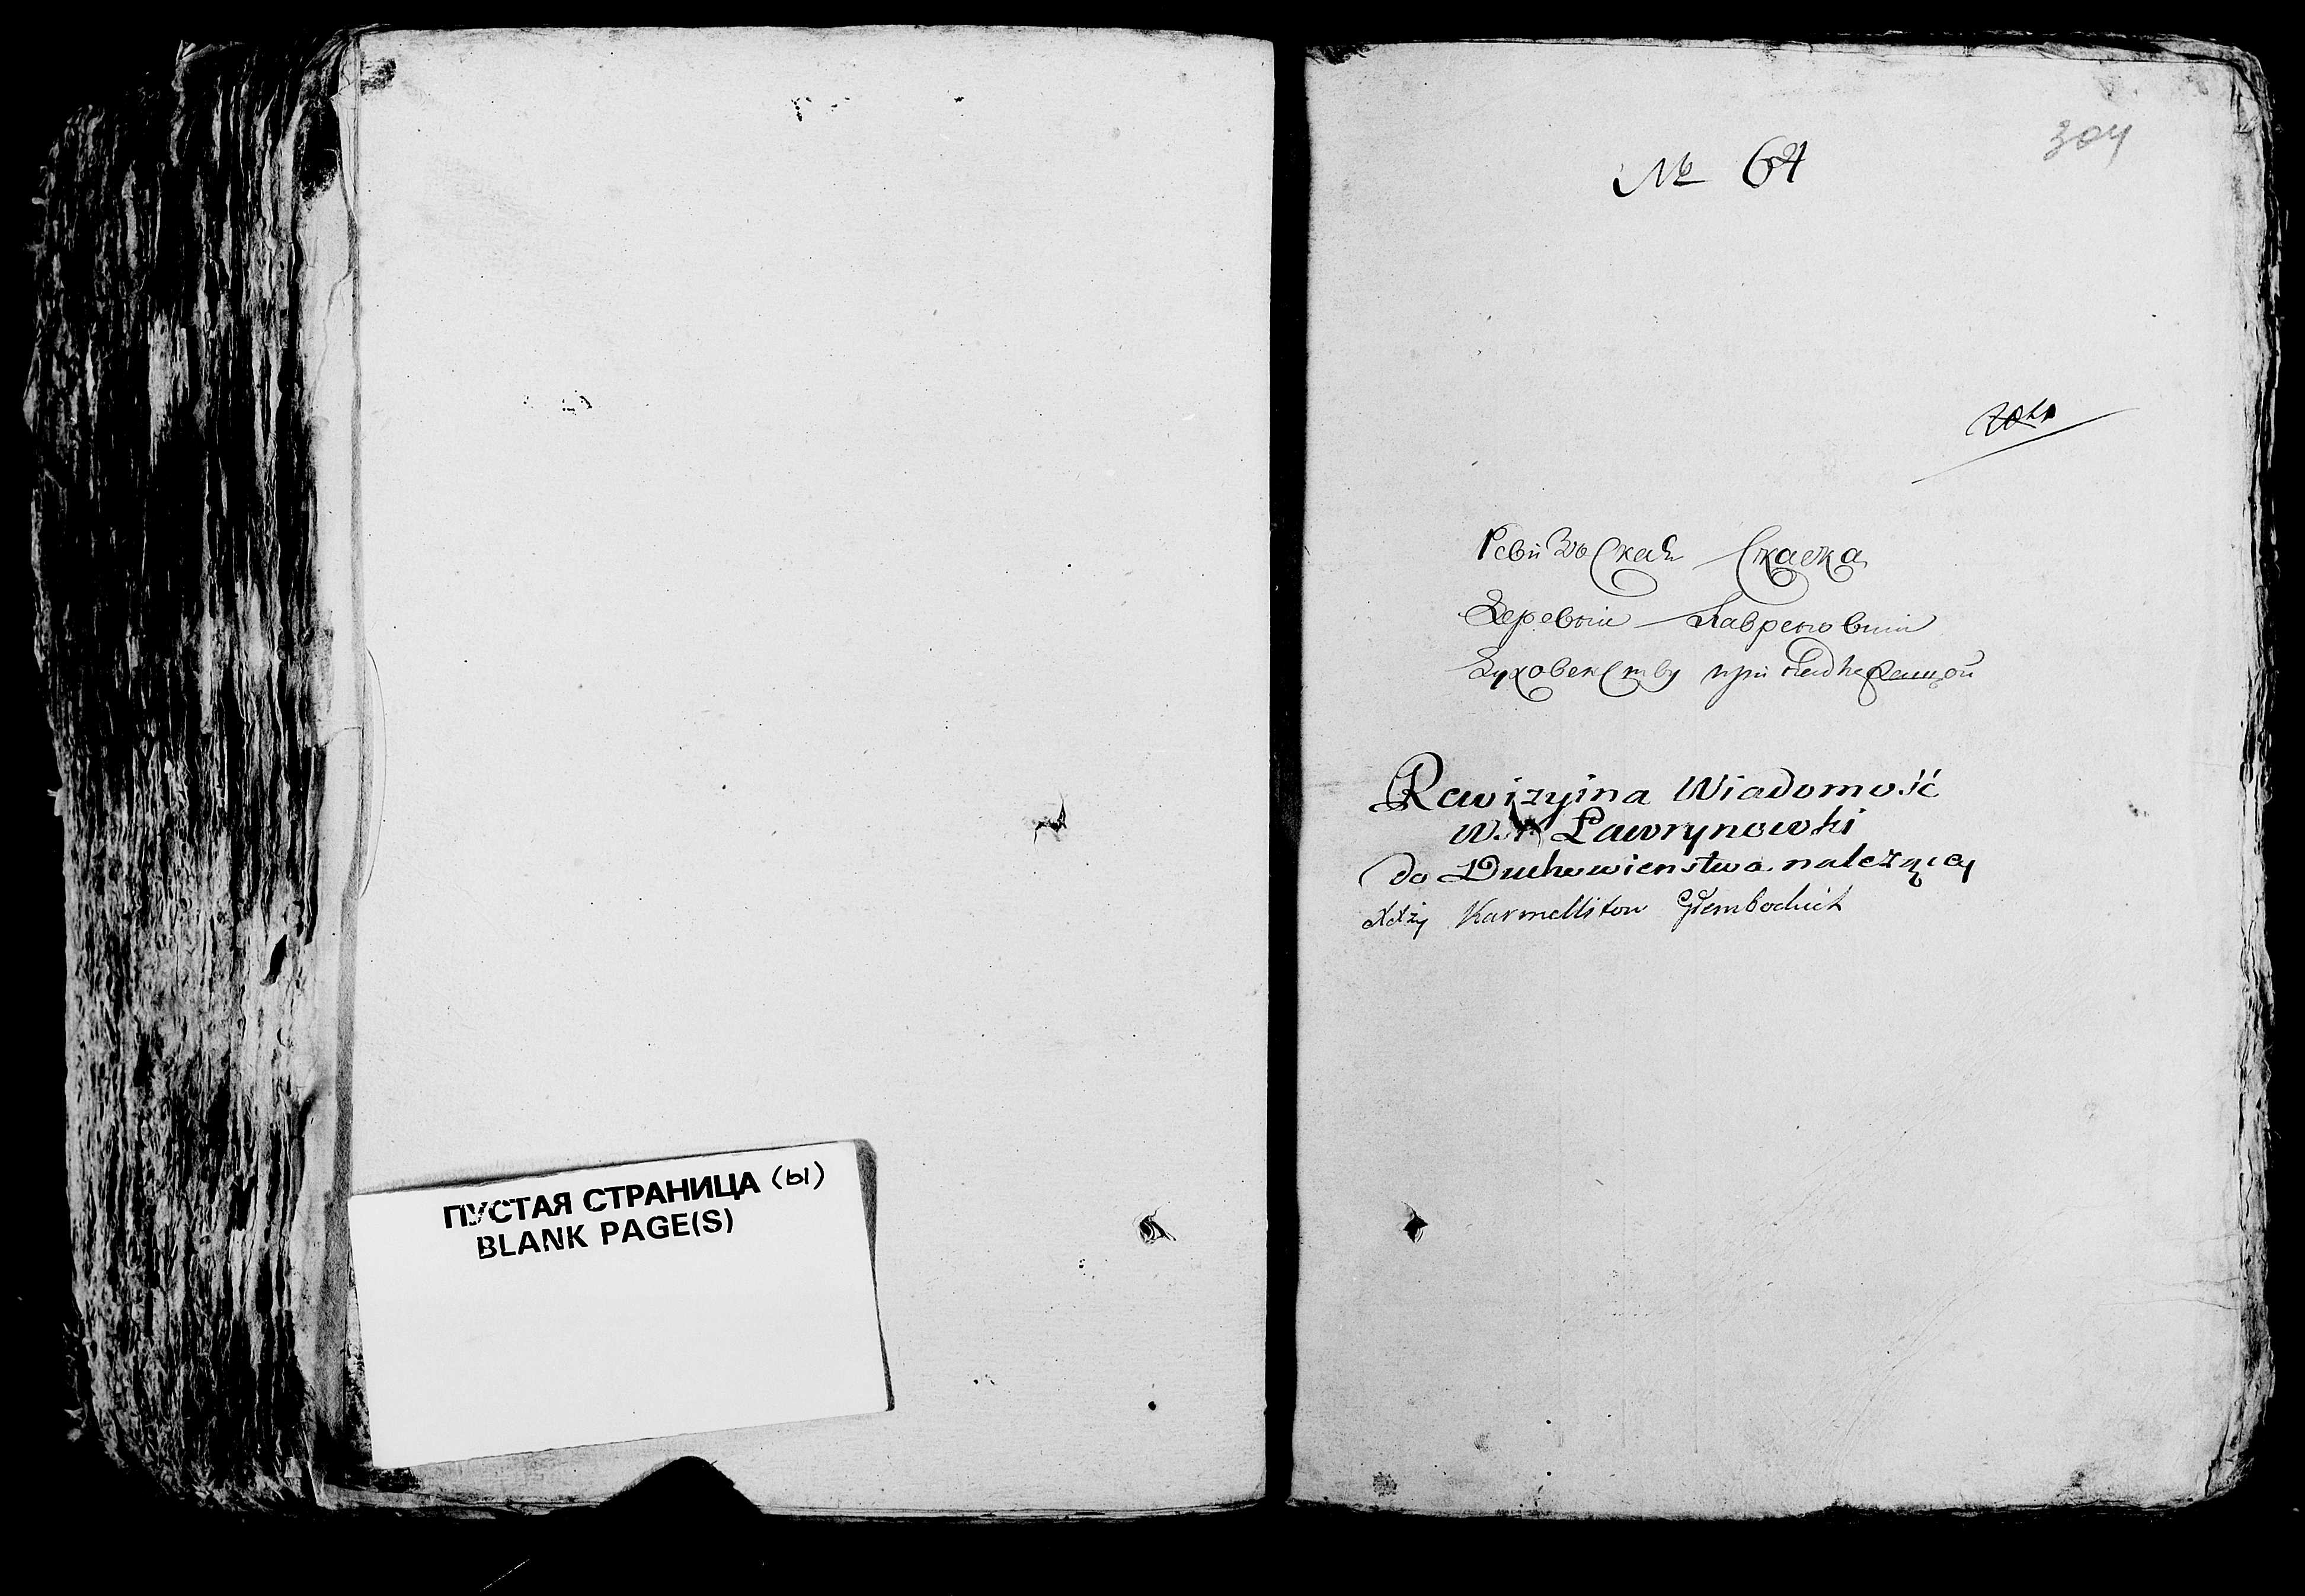 ПУСТАЯ СТРАНИЦА (ы)
BLANK PAGE(S)
304
№ 64
Ревизская Скаска
Деревни Лавреновки
Духовенству принадлежащой
Rewizyina Wiadomość
Wsi Ławrynowki
do Duchowienstwa należący
XXży Karmellitow Głembockich